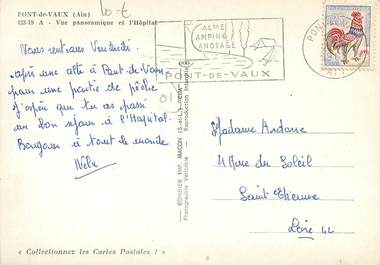 PONT-de-VAUX (Ain)
823-19 A - Vue panoramique et l'Hôpital
10 €
CALME
CAMPING
CANOTAGE
PONT-DE-VAUX
PONT-
AIN
Nous rentrons Vendredi.
après une alte à Pont de Vaux
pour une partie de pêche
J'espère que tu as passé
un bon séjour à l'Hopital-
Bougeons à tout le monde
COMBIER IMP. MACON (S.-et-L.) "CIM"
Photographie Véritable - Reproduction Interdite
Madame Andane
4 Rue du Soleil
Saint Etienne
Loire 42
« Collectionnez les Cartes Postales ! »